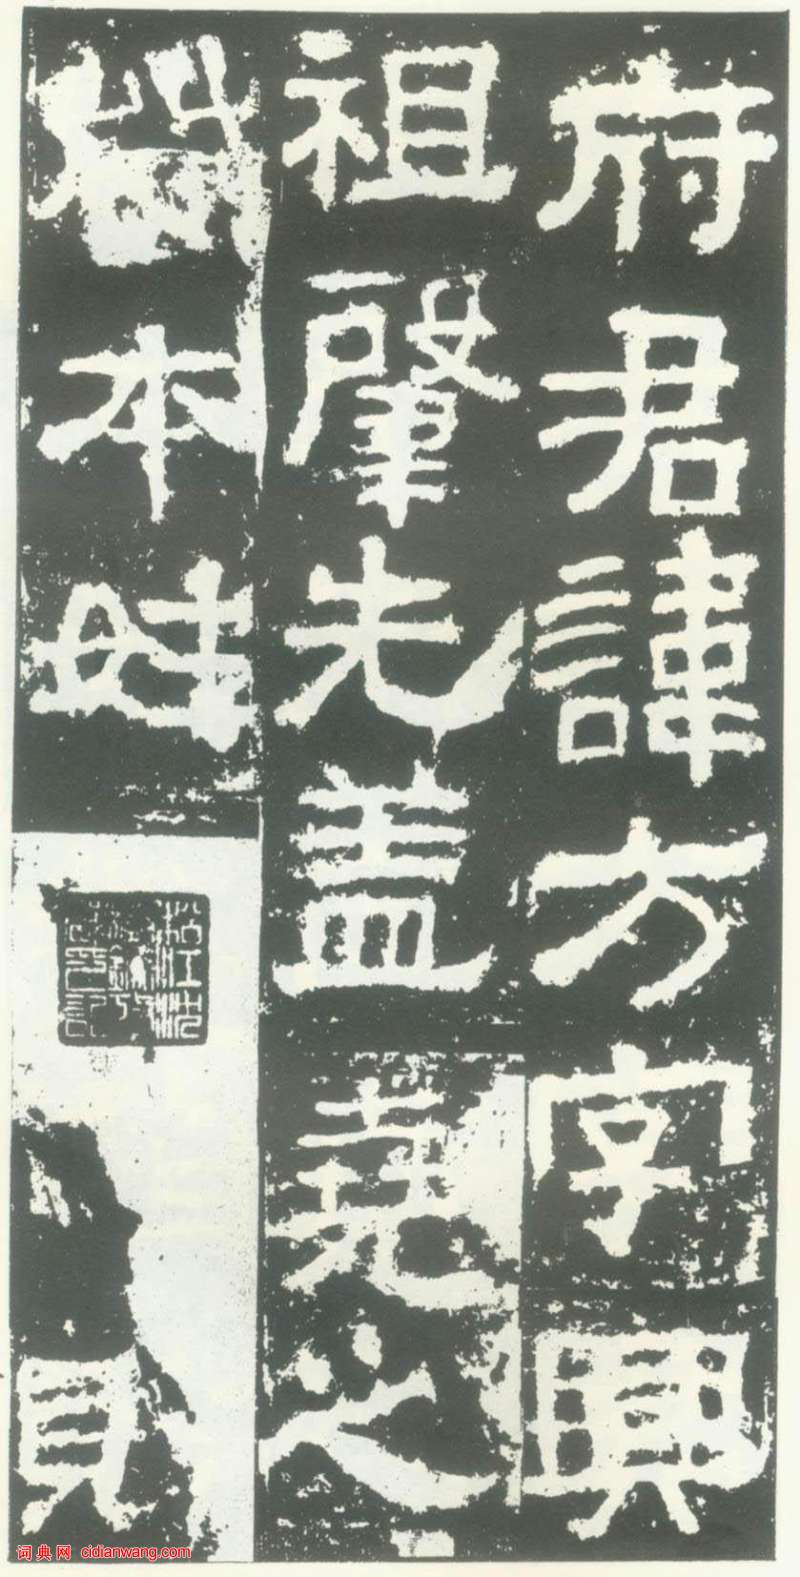 府君諱方字興
祖肇先盖堯之
苗本姓
則
词典网 cidianwang.com